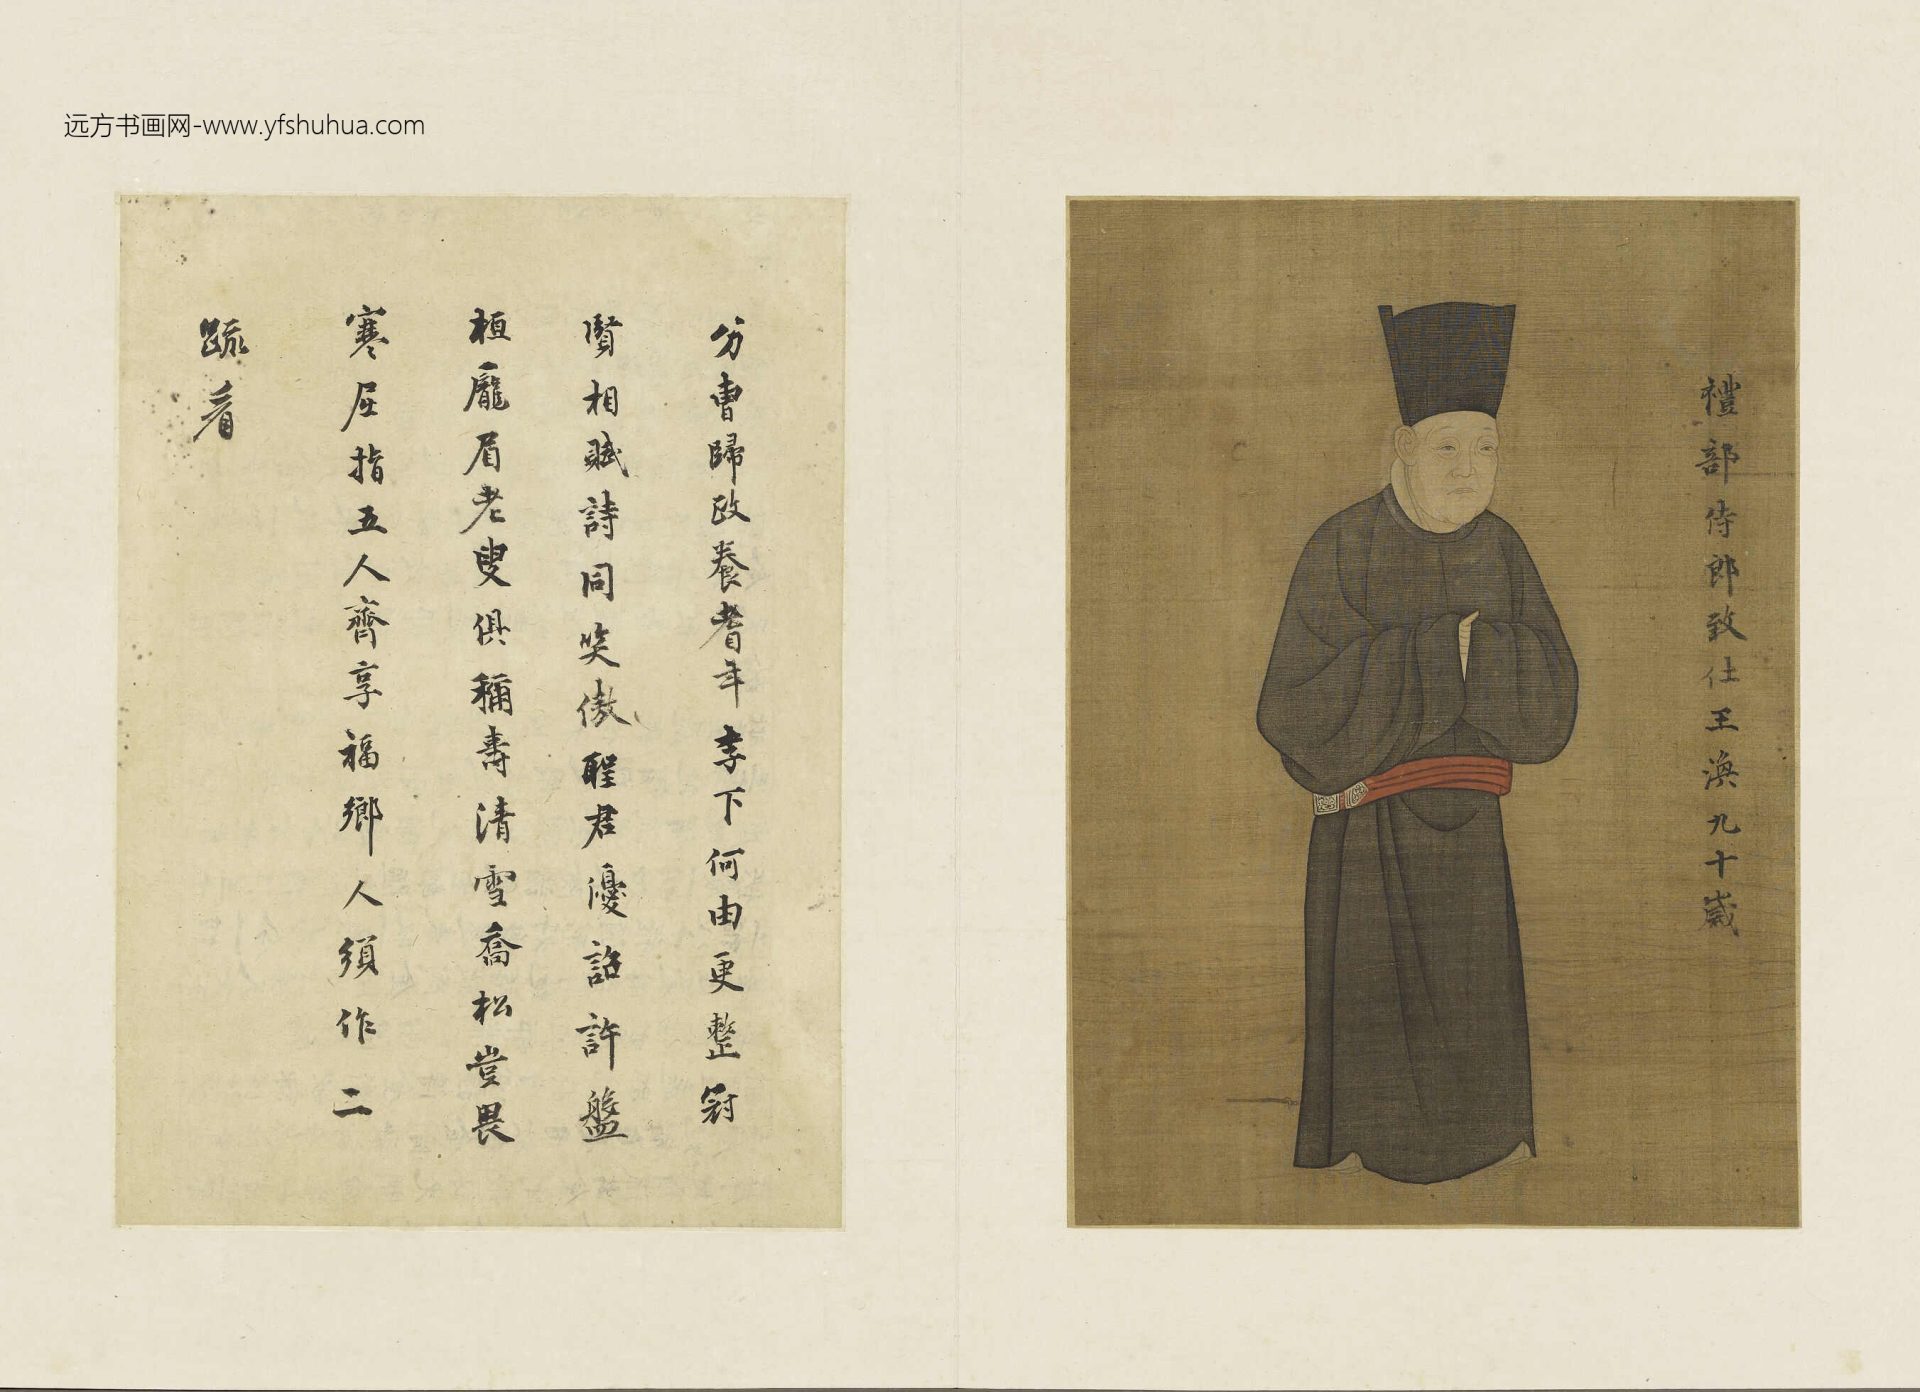 远方书画网-www.yfshuhua.com
禮部侍郎致仕王渙九十歲
分曹歸政養耆年李下何由更整冠
賢相賦詩同笑傲聖君優詔許盤
桓龐眉老叟俱稱壽清雪喬松豈畏
寒屈指五人齊享福鄉人須作二
疏看